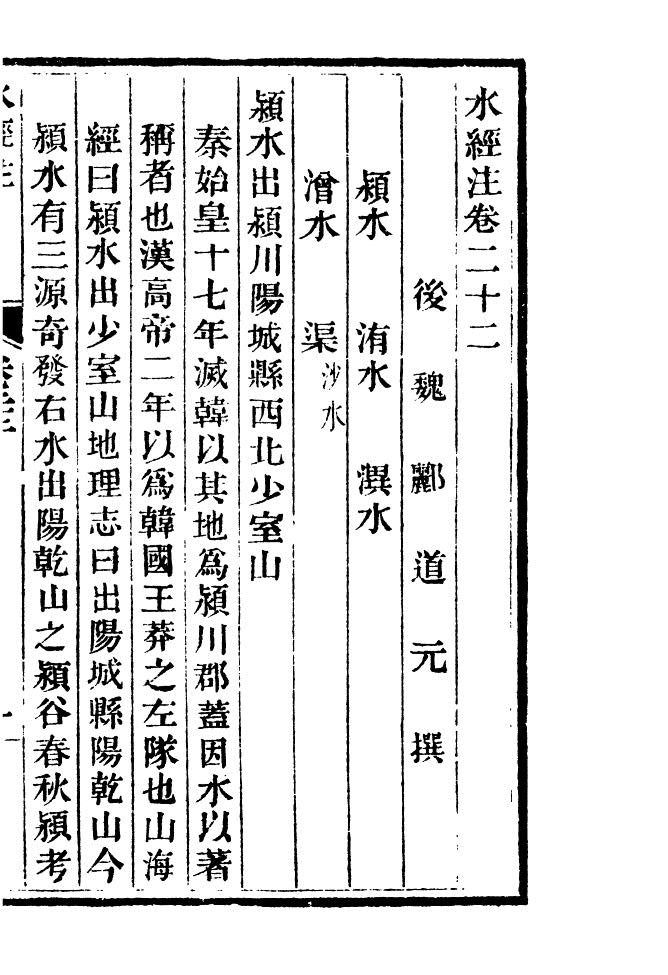 水經注卷二十二
後魏酈道元撰
潁水　洧水　潩水
潧水　渠沙水
潁水出潁川陽城縣西北少室山
秦始皇十七年滅韓以其地爲潁川郡蓋因水以著
稱者也漢高帝二年以爲韓國王莽之左隊也山海
經曰潁水出少室山地理志曰出陽城縣陽乾山今
潁水有三源奇發右水出陽乾山之潁谷春秋潁考
水經注　卷二十二　一